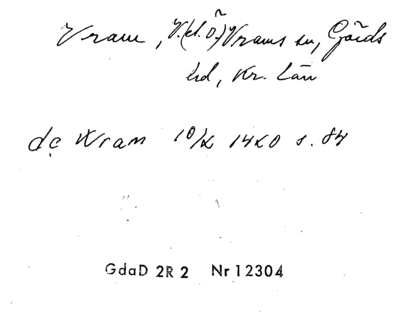 Vram, V. (el. Ö.) Vrams sn, Gärds
hd, Kr. län
de Wram 10/2 1420 s. 84
GdaD 2R2 Nr 12304